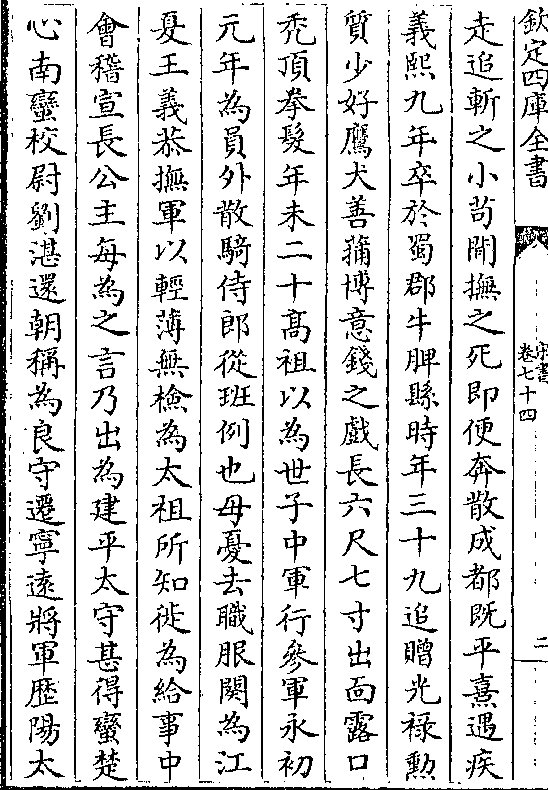 欽定四庫全書
宋書
卷七十四
二
走追斬之小苟聞撫之死即便奔散成都既平熹遇疾
義熙九年卒於蜀郡牛脾縣時年三十九追贈光祿勳
質少好鷹犬善蒱博意錢之戲長六尺七寸出面露口
禿頂拳髮年未二十髙祖以為世子中軍行參軍永初
元年為員外散騎侍郎從班例也母憂去職服闋為江
夏王義恭撫軍以輕薄無檢為太祖所知徙為給事中
會稽宣長公主每為之言乃出為建平太守甚得蠻楚
心南蠻校尉劉湛還朝稱為良守遷寧逺將軍歴陽太